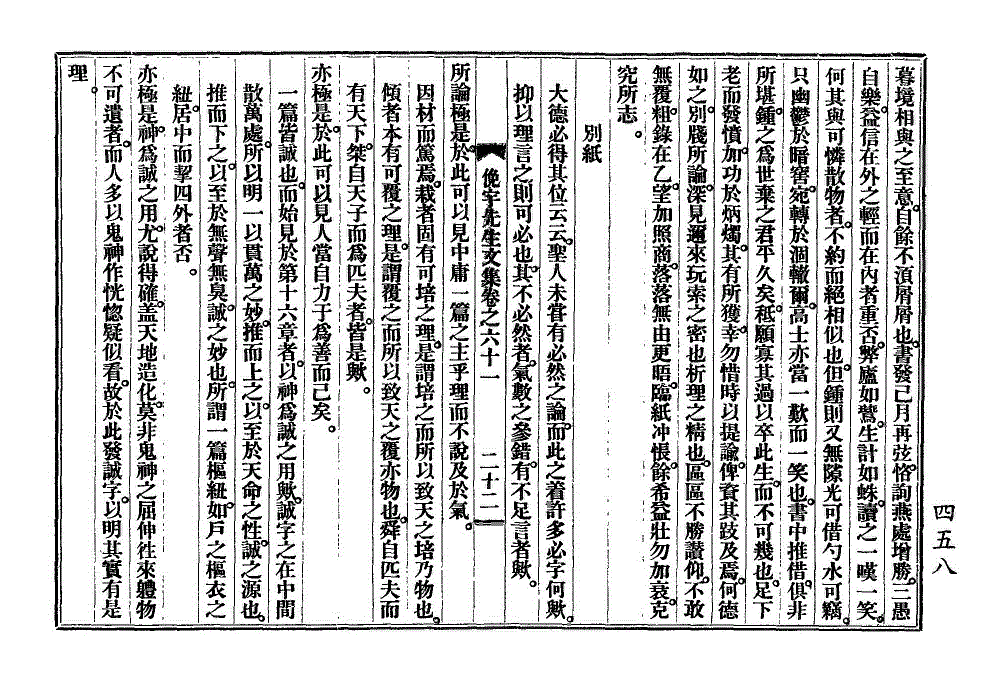 暮境相與之至意。自餘不須屑屑也。書發已月再弦。恪詢燕處增勝。三愚
自樂。益信在外之輕而在內者重否。弊廬如鷩。生計如蛛。讀之一嘆一笑。
何其與可憐散物者。不約而絕相似也。但鍾則又無隙光可借勺水可竊。
只幽鬱於暗窖。宛轉於涸轍爾。高士亦當一歎而一笑也。書中推借。俱非
所堪。鍾之爲世棄之君平久矣。秪願寡其過以卒此生。而不可幾也。足下
老而發憤。加功於炳燭。其有所獲。幸勿惜時以提諭。俾資其跂及焉。何德
如之。別牋所論。深見邇來玩索之密也析理之精也。區區不勝讚仰。不敢
無覆。粗錄在乙。望加照商。落落無由更晤。臨紙冲悵。餘希益壯勿加衰。克
究所志。
別紙
大德必得其位云云。聖人未甞有必然之論。而此之着許多必字何歟。
抑以理言之。則可必也。其不必然者。氣數之參錯。有不足言者歟。
俛宇先生文集卷之六十一 二十二
所論極是。於此可以見中庸一篇之主乎理而不說及於氣。
因材而篤焉。栽者固有可培之理。是謂培之而所以致天之培乃物也。
傾者本有可覆之理。是謂覆之而所以致天之覆亦物也。舜自匹夫而
有天下。桀自天子而爲匹夫者。皆是歟。
亦極是。於此可以見人當自力于爲善而已矣。
一篇皆誠也。而始見於第十六章者。以神爲誠之用歟。誠字之在中間
散萬處。所以明一以貫萬之妙。推而上之。以至於天命之性。誠之源也。
推而下之。以至於無聲無臭。誠之妙也。所謂一篇樞紐。如戶之樞衣之
紐。居中而挈四外者否。
亦極是。神爲誠之用。尤說得確。盖天地造化。莫非鬼神之屈伸徃來軆物
不可遺者。而人多以鬼神作恍惚疑似看。故於此發誠字。以明其實有是
理。
四五八